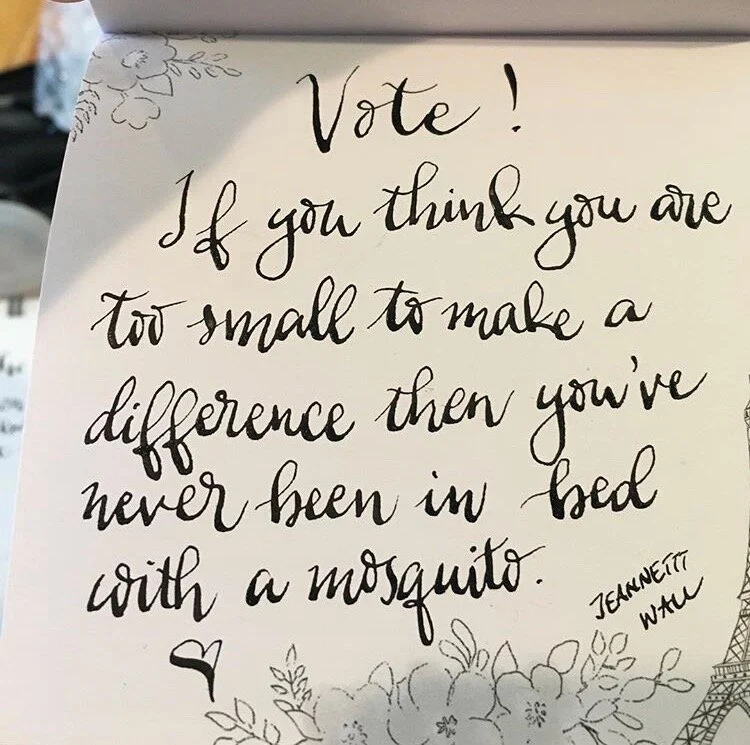 Vote!
If you think you are
too small to make a
difference then you've
never been in bed
with a mosquito.
JEANNETT
WALL